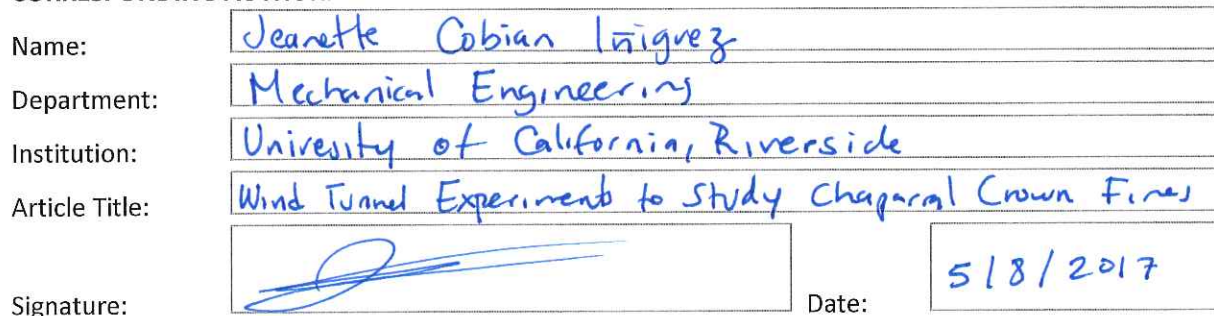 Name: Jeanette Cobian Iñiguez
Department: Mechanical Engineering
Institution: University of California, Riverside
Article Title: Wind Tunnel Experiments to Study Chaparral Crown Fires
Signature:
Date: 5/8/2017